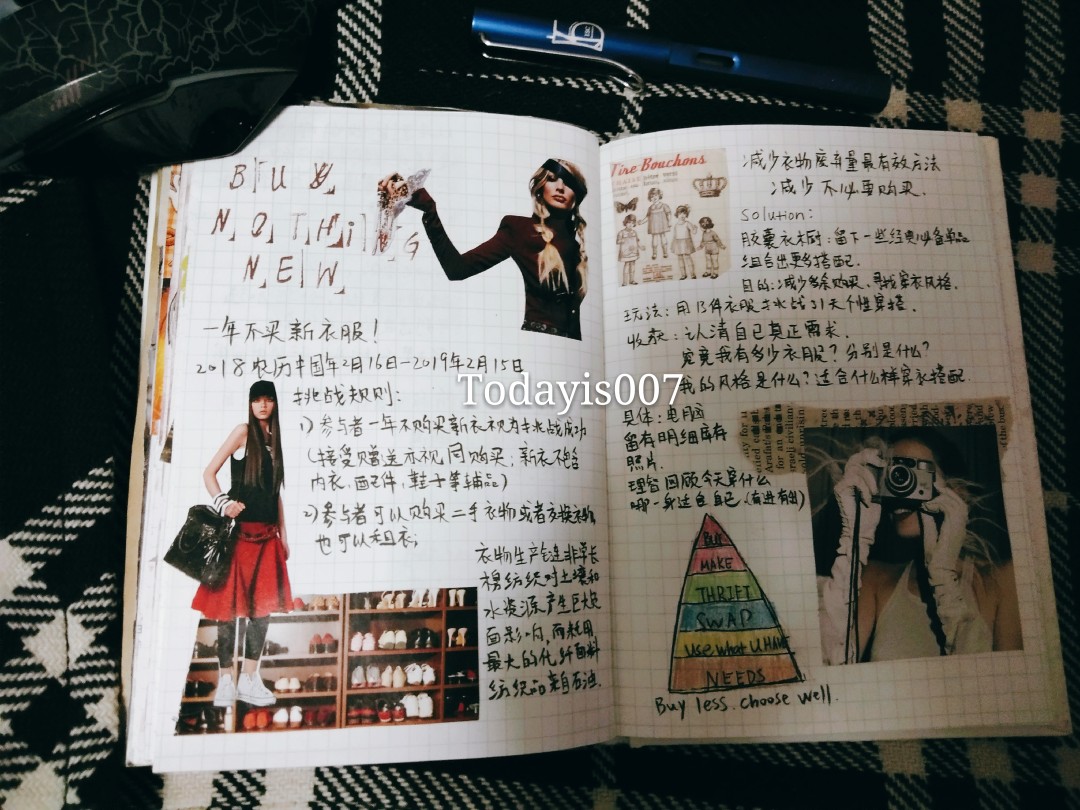 BUY
NOTHiNG
NEW
一年不买新衣服！
2018农历中国年2月16日-2019年2月15日
挑战规则：
1）参与者一年不购买新衣衣视为挑战成功
（接受赠送亦视同购买，新衣不含
内衣、配件，鞋子等辅品）
2）参与者可以购买二手衣物或者交换衣物
也可以租衣；
衣物生产链非常长
棉纺织对土壤和
水资源产生巨大负
面影响，而耗用
最大的化纤面料
纺织品来自石油.
Tire Bouchons
减少衣物废弃量最有效方法
减少不必要购买.
Solution:
胶囊衣橱：留下一些经典必备单品
组合出更多搭配.
目的：减少多余购买、寻找穿衣风格.
玩法：用15件衣服挑战31天个性穿搭.
收获：认清自己真正需求.
究竟我有多少衣服？分别是什么？
我的风格是什么？适合什么样穿衣搭配
Todayis007
具体：电脑
留有明细库存
照片.
理智回顾今天穿什么
哪一身过色自己（有进有出）
BUY
MAKE
THRIFT
SWAP
Use what U HAVE
NEEDS
Buy less. choose well.